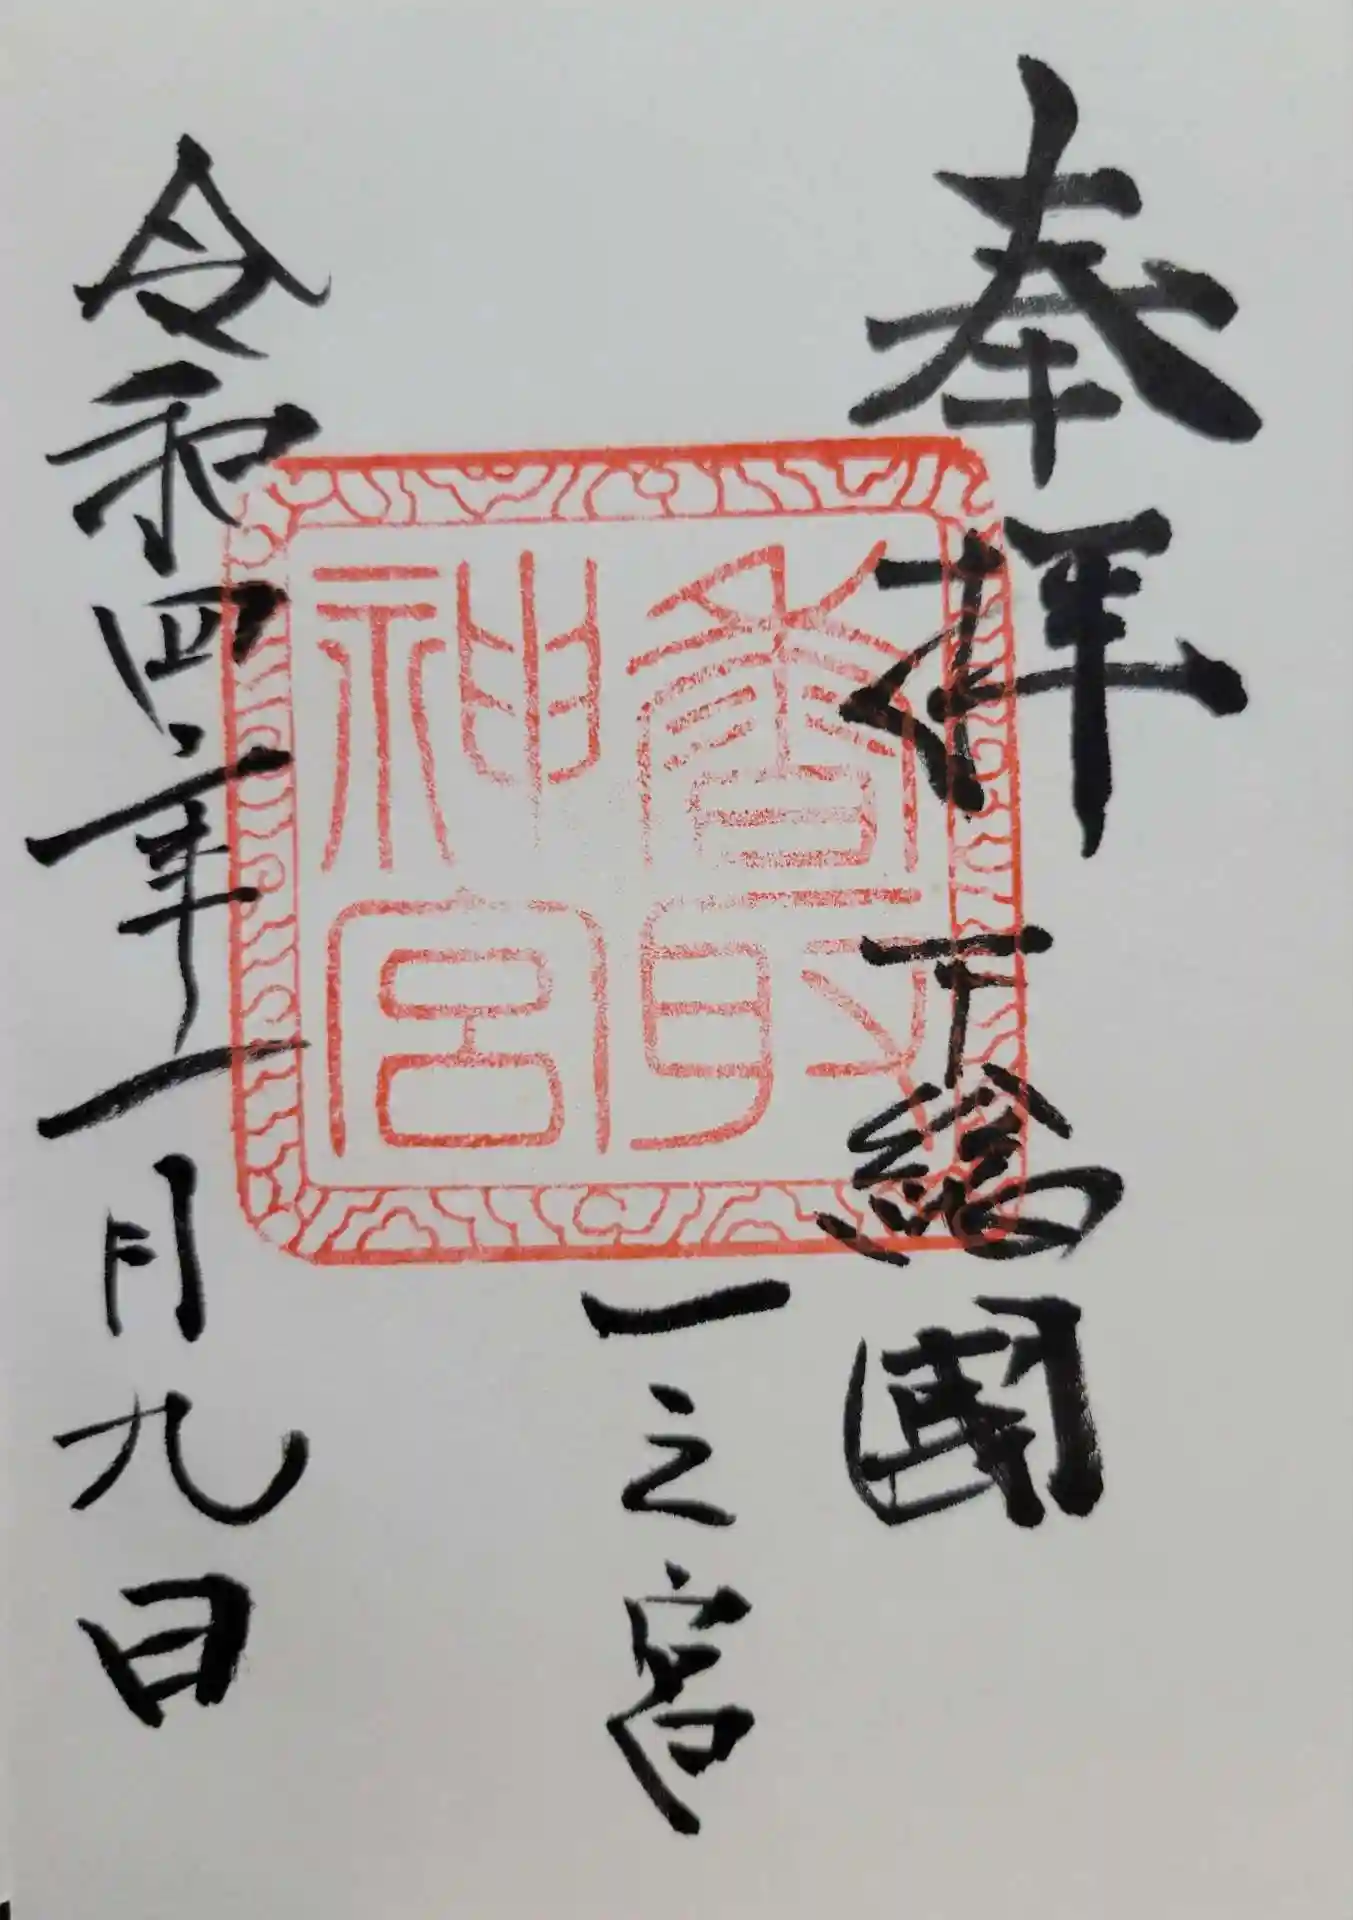 奉拝 下総國
香取神宮
一之宮
令和四年一月九日